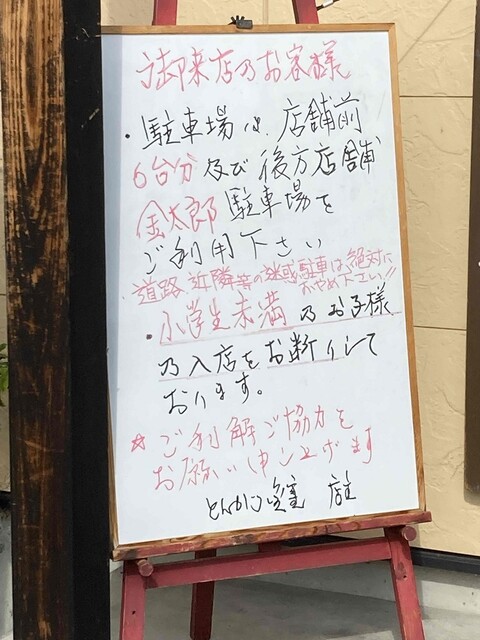 御来店のお客様
・駐車場は、店舗前
6台分及び後方店舗
金太郎駐車場を
ご利用下さい
・道路近隣等の迷惑駐車は絶対に
おやめ下さい!!
・小学生未満のお子様
の入店をお断りして
おります。
☆ご利解ご協力を
お願い申し上げます
とんかつ 店主